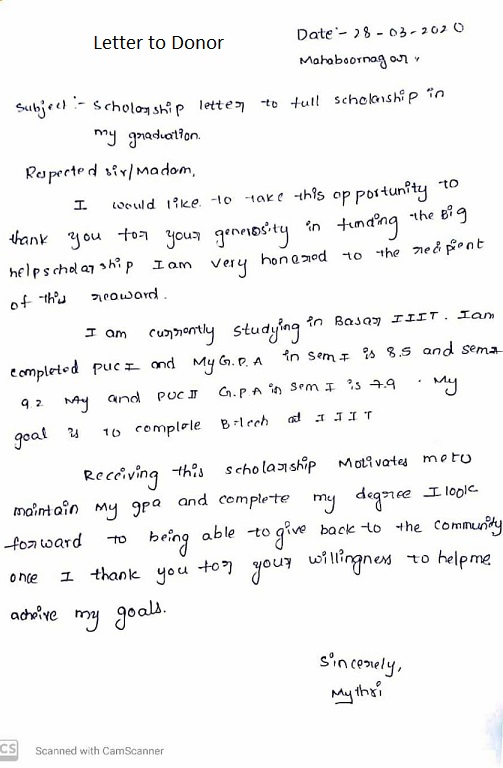 Letter to Donor
Date:- 28-03-2020
Mahaboornagar,
Subject:- Scholarship letter to full scholarship in
my graduation.
Respected sir/Madam,
I would like to take this opportunity to
thank you for your generosity in funding the Big
help scholarship I am very honored to the recipient
of this reaward.
I am currently studying in Basar IIIT. I am
completed PUC I and My G.P.A in sem I is 8.5 and sem 2
9.2 My and PUC II G.P.A in sem I is 7.9 . My
goal is to complete B-tech at IIIT
Receiving this scholarship Motivates me to
maintain my gpa and complete my degree I look
forward to being able to give back to the community
once I thank you for your willingness to help me
acheive my goals.
Sincerely,
Mythri
CS Scanned with CamScanner